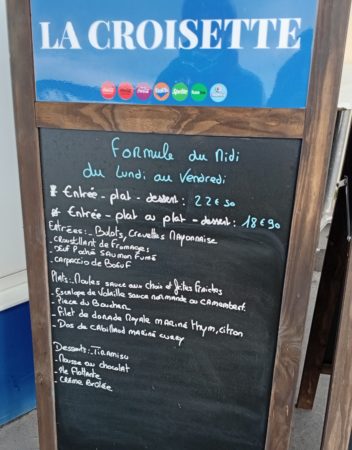 LA CROISETTE
Formule du Midi
du Lundi au Vendredi
* Entrée - plat - dessert : 22€50
* Entrée - plat ou plat - dessert : 18€90
Entrées :- Bulots, Crevettes Mayonnaise
- Croustillant de Fromages
- Œuf Poché Saumon Fumé
- Carpaccio de Bœuf
Plats :- Moules sauce aux choix et frites fraîches
- Escalope de Volaille sauce normande ou camembert
- Pièce du Boucher
- Filet de dorade Royale mariné thym, citron
- Dos de Cabillaud mariné curry
Desserts :- Tiramisu
- Mousse au chocolat
- Ile Flottante
- Crème Brûlée